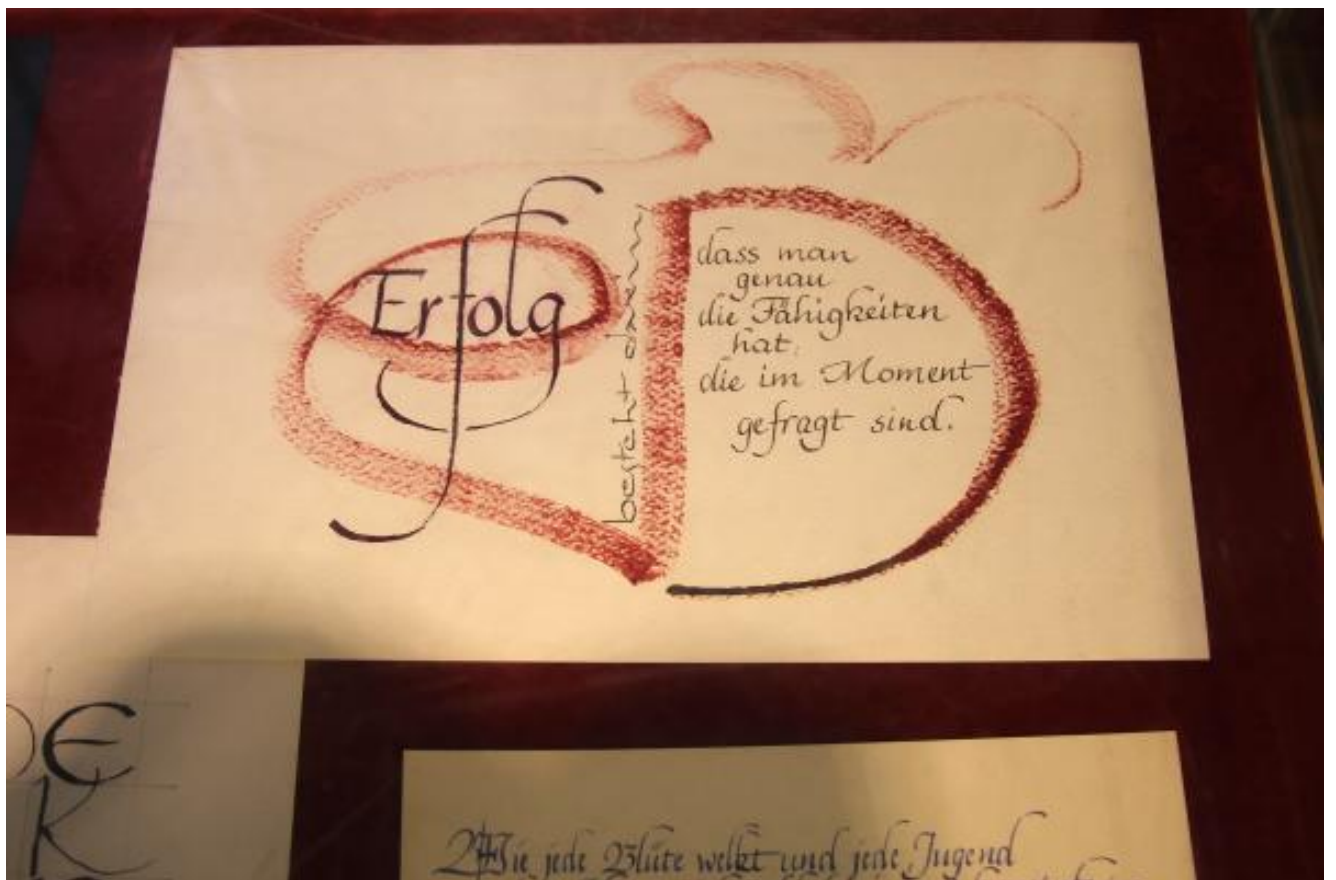 Erfolg
besteht darin,
dass man
genau
die Fähigkeiten
hat,
die im Moment
gefragt sind.
E
K
Wie jede Blüte welkt und jede Jugend